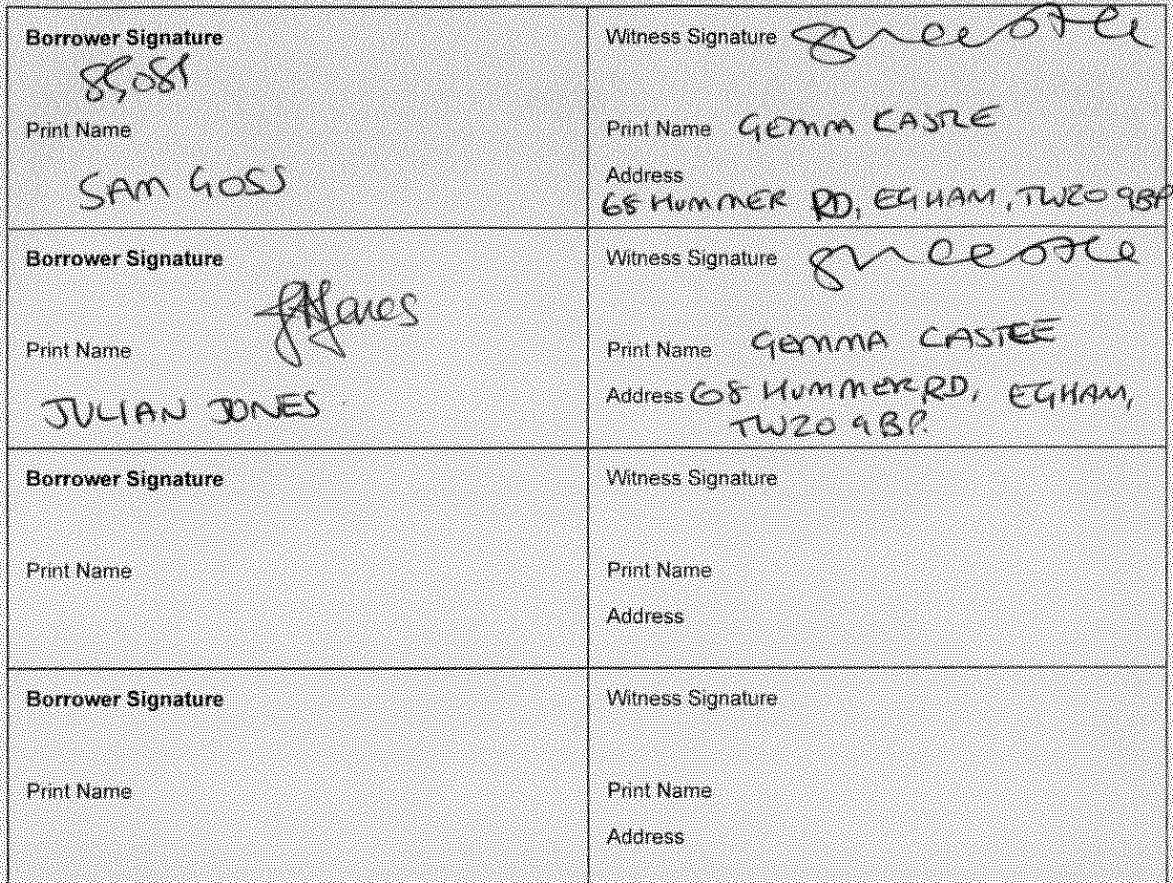 Borrower Signature
Print Name
SAM GOSS
Witness Signature
Print Name GEMMA CASTLE
Address
68 HUMMER RD, EGHAM, TW20 9BP
Borrower Signature
Jones
Print Name
JULIAN JONES
Witness Signature
Print Name GEMMA CASTLE
Address 68 HUMMER RD, EGHAM,
TW20 9BP.
Borrower Signature
Print Name
Witness Signature
Print Name
Address
Borrower Signature
Print Name
Witness Signature
Print Name
Address